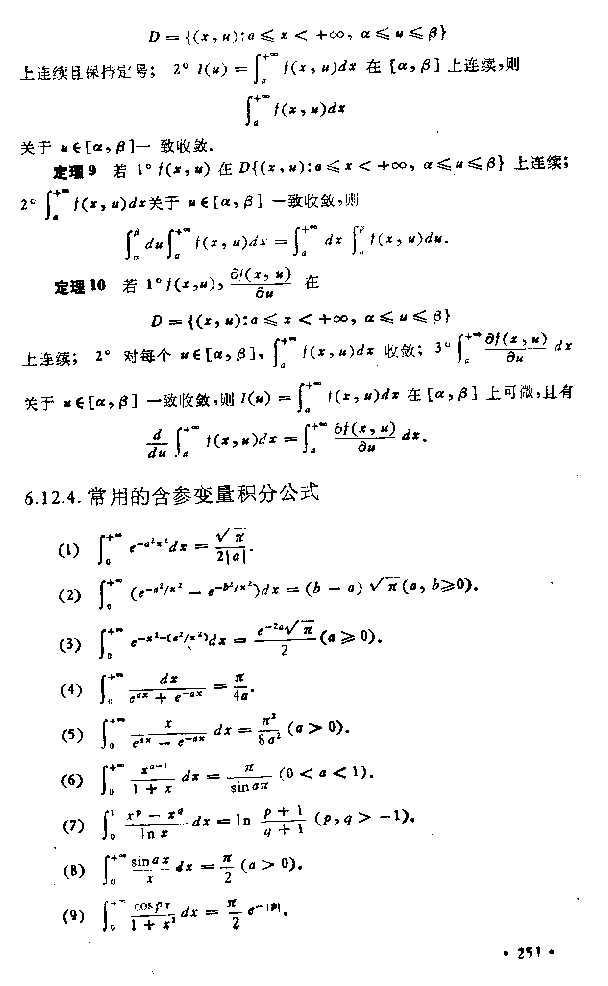 D = {(x, u): a ⩽ x < +∞, α ⩽ u ⩽ β}
上连续且保持定号; 2° I(u) = ∫_a^{+∞} f(x, u)dx 在 [α, β] 上连续,则
∫_a^{+∞} f(x, u)dx
关于 u∈[α, β]一致收敛.
定理9 若 1° f(x, u) 在 D{(x, u): a ⩽ x < +∞, α ⩽ u ⩽ β} 上连续;
2° ∫_a^{+∞} f(x, u)dx关于 u∈[α, β] 一致收敛,则
∫_α^β du∫_a^{+∞} f(x, u)dx = ∫_a^{+∞} dx ∫_α^β f(x, u)du.
定理10 若 1° f(x,u), ∂f(x, u)/∂u 在
D = {(x, u): a ⩽ x < +∞, α ⩽ u ⩽ β}
上连续; 2° 对每个 u∈[α, β], ∫_a^{+∞} f(x, u)dx 收敛; 3° ∫_a^{+∞} ∂f(x, u)/∂u dx
关于 u∈[α, β] 一致收敛,则 I(u) = ∫_a^{+∞} f(x, u)dx 在 [α, β] 上可微,且有
d/du ∫_a^{+∞} f(x, u)dx = ∫_a^{+∞} ∂f(x, u)/∂u dx.
6.12.4. 常用的含参变量积分公式
(1) ∫_0^{+∞} e^{-a²x²}dx = √π/2|a|.
(2) ∫_0^{+∞} (e^{-a²/x²} − e^{-b²/x²})dx = (b − a) √π (a, b⩾0).
(3) ∫_0^{+∞} e^{-x²-(a²/x²)}dx = e^{-2a}√π/2 (a ⩾ 0).
(4) ∫_0^{+∞} dx/(e^{ax} + e^{-ax}) = π/4a.
(5) ∫_0^{+∞} x/(e^{ax} − e^{-ax}) dx = π²/8a² (a > 0).
(6) ∫_0^{+∞} x^{a-1}/(1 + x) dx = π/sin aπ (0 < a < 1).
(7) ∫_0^1 (x^p − x^q)/ln x dx = ln (p + 1)/(q + 1) (p, q > −1).
(8) ∫_0^{+∞} sin ax/x dx = π/2 (a > 0).
(9) ∫_0^{+∞} cos px/(1 + x²) dx = π/2 e^{-|p|}.
• 251 •